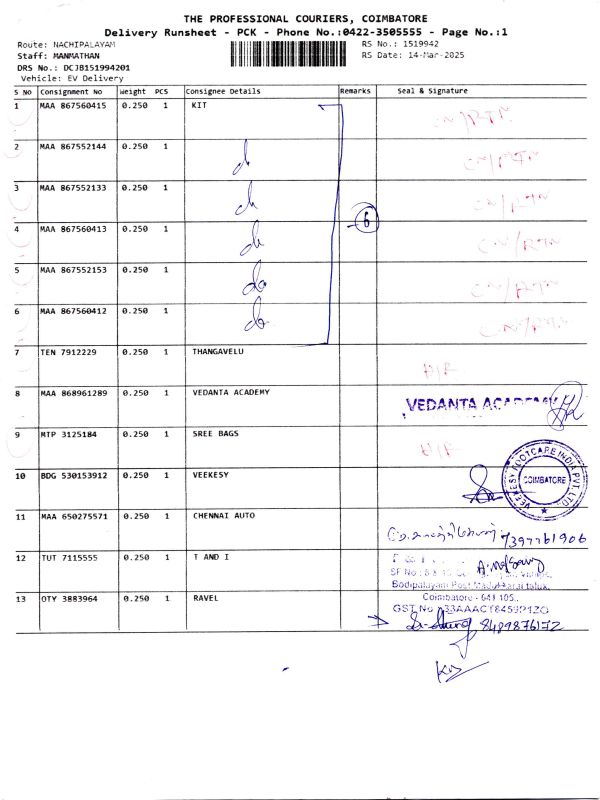 THE PROFESSIONAL COURIERS, COIMBATORE
Delivery Runsheet - PCK - Phone No.:0422-3505555 - Page No.:1
Route: NACHIPALAYAM RS No.: 1519942
Staff: MANMATHAN RS Date: 14-Mar-2025
DRS No.: DCJB151994201
Vehicle: EV Delivery
S No Consignment No Weight PCS Consignee Details Remarks Seal & Signature
1 MAA 867560415 0.250 1 KIT CN/RTN
2 MAA 867552144 0.250 1 do CN/RTN
3 MAA 867552133 0.250 1 do CN/RTN
4 MAA 867560413 0.250 1 do 6 CN/RTN
5 MAA 867552153 0.250 1 do CN/RTN
6 MAA 867560412 0.250 1 do CN/RTN
7 TEN 7912229 0.250 1 THANGAVELU
8 MAA 868961289 0.250 1 VEDANTA ACADEMY VEDANTA ACADEMY
9 MTP 3125184 0.250 1 SREE BAGS
10 BDG 530153912 0.250 1 VEEKESY VEEKESY FOOTCARE INDIA PVT. LTD. COIMBATORE
11 MAA 650275571 0.250 1 CHENNAI AUTO 7397761906
12 TUT 7115555 0.250 1 T AND I
SF No
Bodipalayam Post, Madukkarai taluk,
13 OTY 3883964 0.250 1 RAVEL Coimbatore - 641 105.
GST No
8489876172